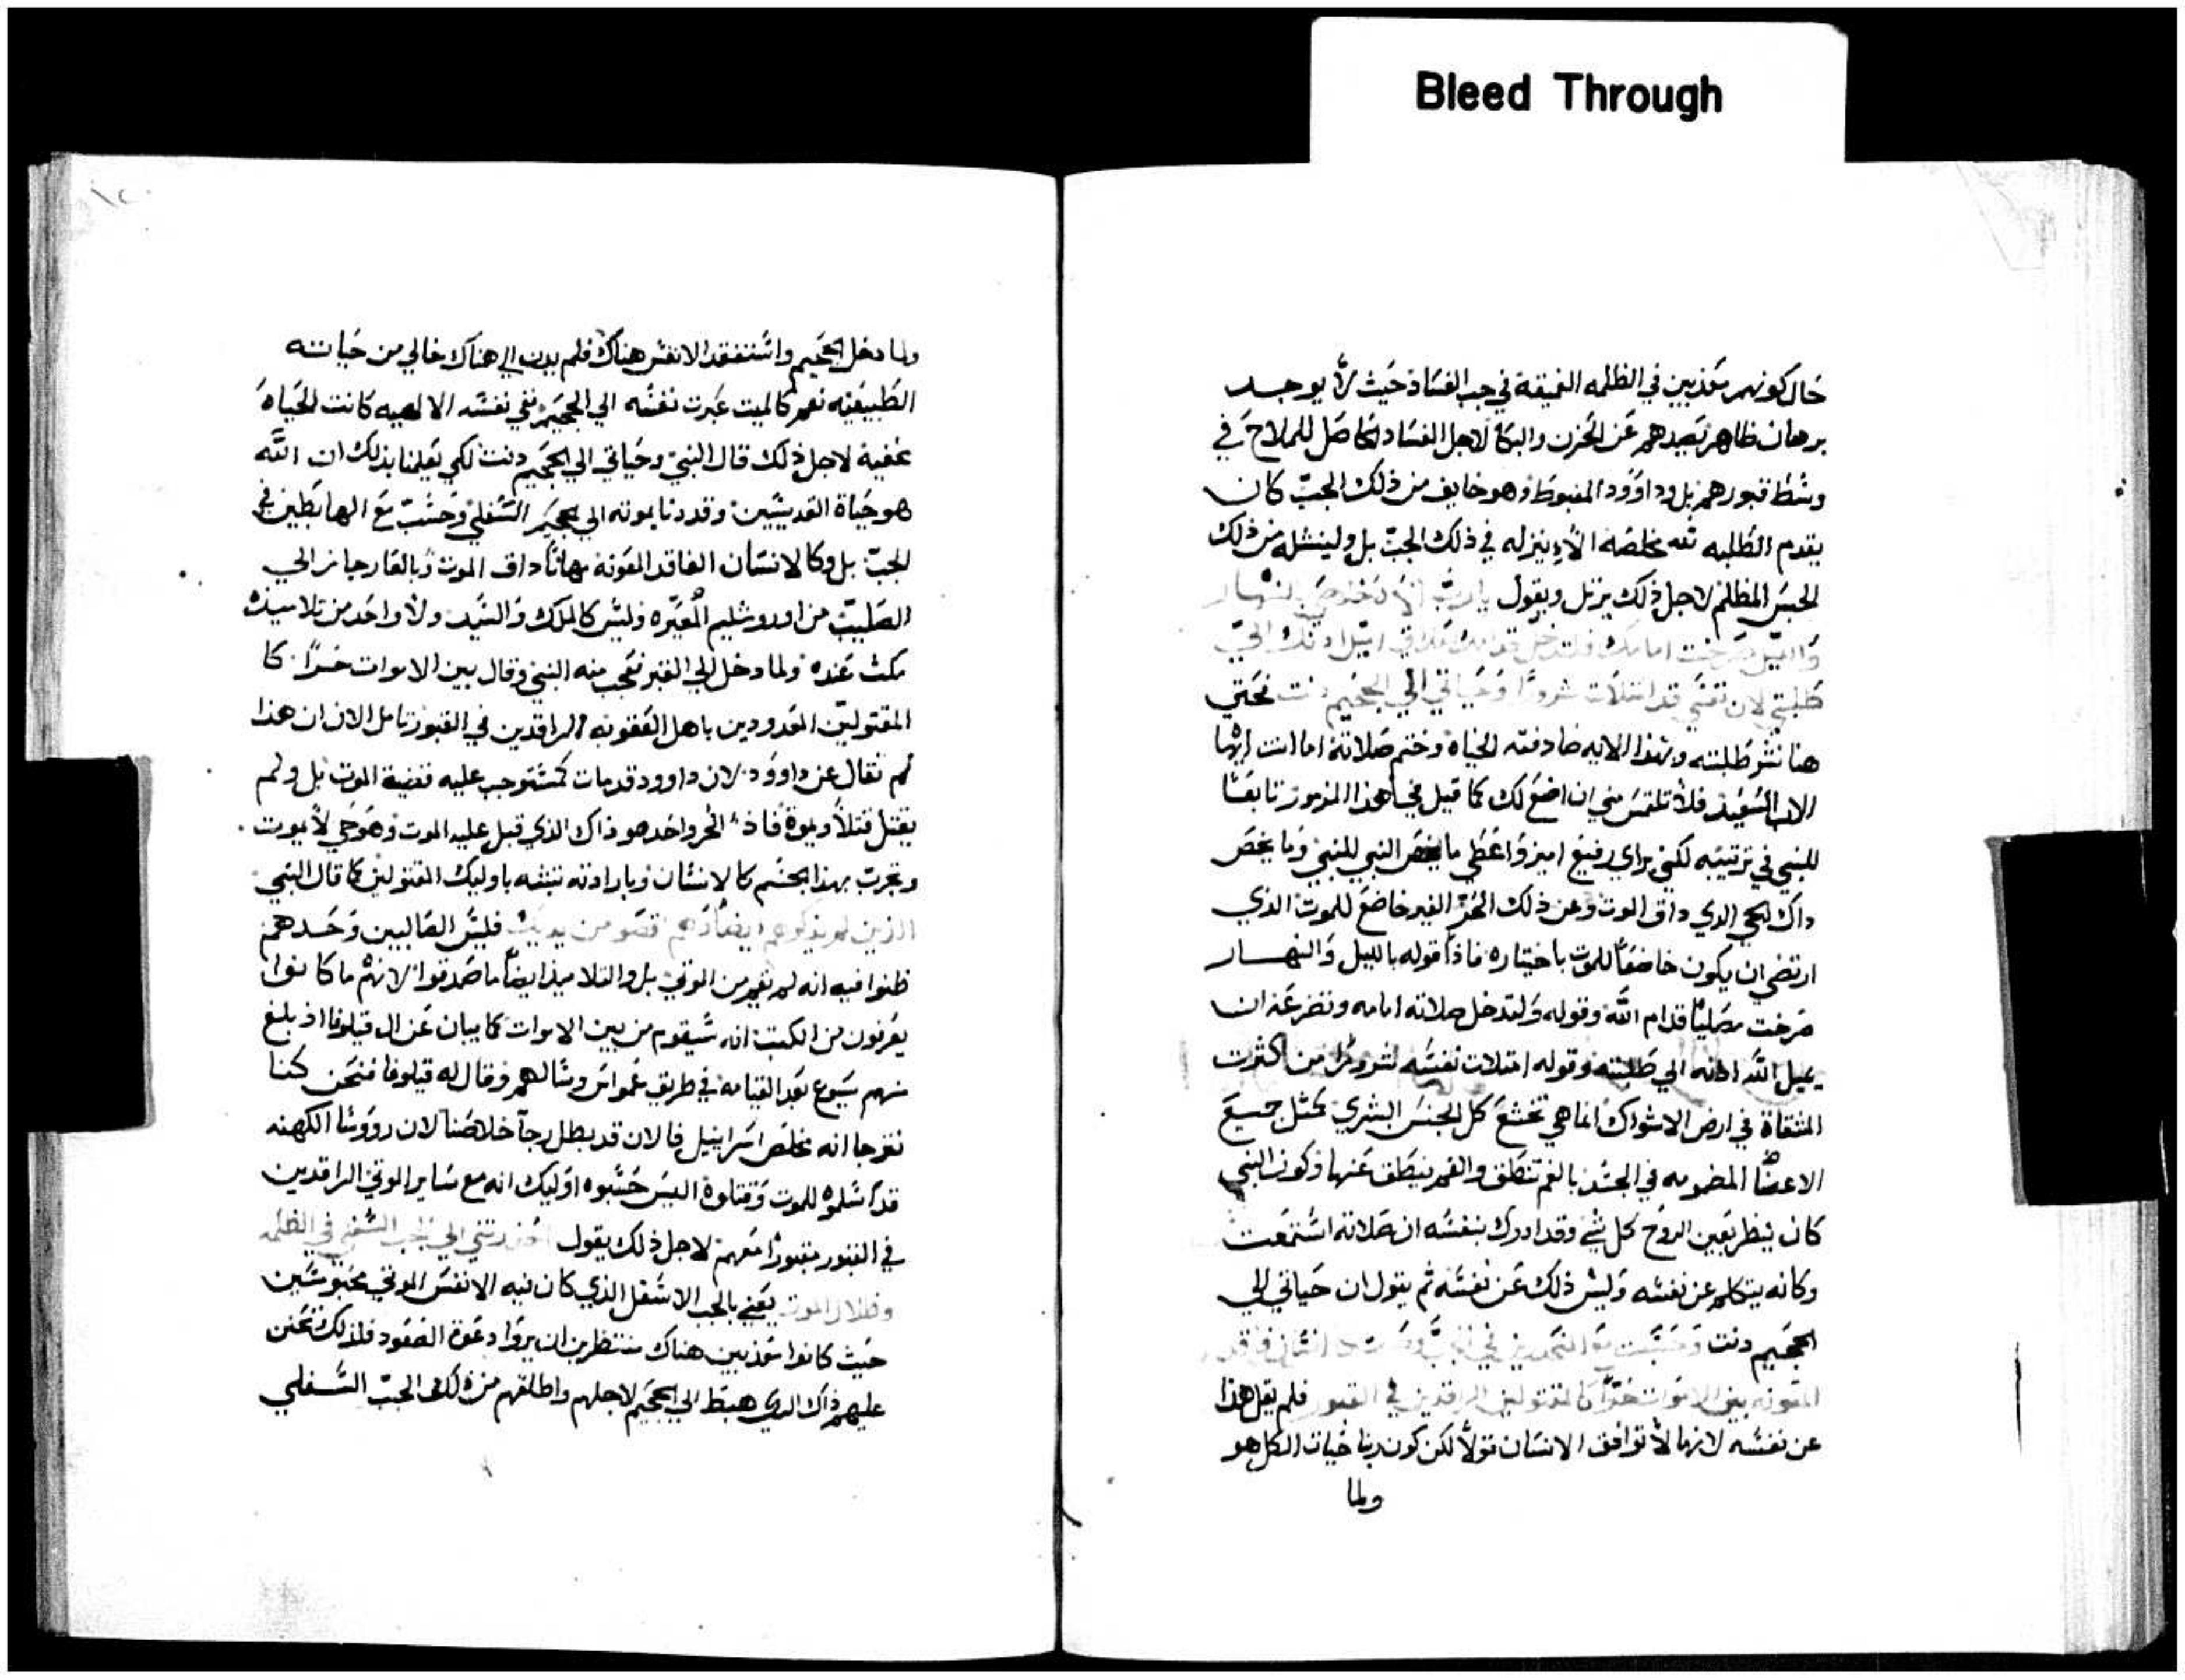 Bleed Through
حال كونهم معذبين في الظلمه العميقة في جب الفساد حيث لا يوجد
برهان ظاهر يصدهم عن الحزن والبكا لاجل الفساد الحاصل للملاح في
وسط قبورهم بل وداوود المغبوط وهو خايف من ذلك الجب كان
يقدم الطلبه لله مخلصه الا ينزله في ذلك الجب بل ولينشله من ذلك
الحبس المظلم لاجل ذلك يرتل ويقول يارب الاه خلاصي بالنهار
والليل صرخت امامك فلتدخل قدامك صلاتي اميل ادنك الي
طلبتي لان نفسي قد امتلات شرورا وحياتي الي الجحيم دنت فحتي
هنا نشر طلبته وبهذا الايه صادفته الحياة وختم صلاته اما انت ايها
الاب السعيد فلا تلتمس مني ان اضع لك كما قيل في هذا المزمور تابعا
للنبي في ترتيبه لكني براي رفيع اميز واعطي ما يخص النبي للنبي وما يخص
داك الحي الدي داق الموت وعن ذلك الحر الغير خاضع للموت الذي
ارتضي ان يكون خاضعا للموت باختياره فاذا قوله بالليل والنهار
صرخت مصليا قدام الله وقوله ولتدخل صلاته امامه وتضرعه ان
يميل الله ادنه الي طلبته وقوله امتلات نفسه شرورا من كثرت
المنقاة في ارض الاشواك انما هي تخشع كل الجنس البشري كمثل جميع
الاعضا المضمومه في الجسد بالفم تنطلق والفم ينطق عنها فكون النبي
كان ينظر بعين الروح كل شي وقد ادرك بنفسه ان صلاته استمعت
وكانه يتكلم عن نفسه وليس ذلك عن نفسه ثم يقول ان حياتي الي
الجحيم دنت وحسبت مع المنحدرين في الجب وصرت كانسان فاقد
المعونه بين الاموات حرا كالمقتولين الراقدين في القبور فلم يقل هذا
عن نفسه لانها لا توافق الانسان قولا لكن كون ربنا حيات الكل هو
ولما
ولما دخل الجحيم واستفقد الانفس هناك فلم يدن الي هناك خالي من حياته
الطبيعيه نعم كالميت عبرت نفسه الي الجحيم نفي نفسه الالهيه كانت الحياه
مخفية لاجل ذلك قال النبي وحياتي الي الجحيم دنت لكي يعلمنا بذلك ان الله
هو حياة القديسين وقد دنا بموته الي الجحيم السفلي وحسب مع الهابطين في
الجب بل وكالانسان الفاقد المعونة مهانا داق الموت وبالعار جايز الي
الصليب من اوروشليم المعيره وليس كالملك والسيد ولا واحد من تلاميذه
مكث عنده ولما دخل الي القبر تعجب منه النبي وقال بين الاموات حرا كا
المقتولين المعدودين باهل العقوبه الراقدين في القبور تامل الان ان هذا
لم تقال عن داوود لان داوود قد مات كمستوجب عليه قضية الموت بل ولم
يقتل قتلا ويموة فاذا الحر واحد هو ذاك الذي قبل عليه الموت وهو حي لا يموت
وتجرب بهذا الجسم كالانسان وبارادته تشبه باوليك المقتولين كما قال النبي
الذين لم تذكرهم ايضا وهم اقصو من يديك فليس الصالبين وحدهم
ظنوا فيه انه لم يقوم من الموتي بل والتلاميذ ايضا ما صدقوا لانهم ما كانوا
يعرفون من الكتب انه سيقوم من بين الاموات كما بيان عن ال قيلوفا اذ بلغ
منهم يسوع بعد القيامه في طريق عمواس وسالهم وقال له قيلوفا فنحن كنا
نترجا انه مخلص اسراييل فالان قد بطل رجآ خلاصنا لان رووسا الكهنه
قد اسلموه للموت وقتلوة اليس حسبوه اوليك انه مع ساير الموتي الراقدين
في القبور مقبورا معهم لاجل ذلك يقول احدرتني الي الجب السفلي في الظلمه
وظلال الموت يعني بالجب الاسفل الذي كان فيه الانفس الموتي محبوسين
حيث كانوا معذبين هناك منتظرين ان يروا دعوة الصعود فلذلك تحنن
عليهم ذاك الدي هبط الي الجحيم لاجلهم واطلقهم من ذلك الجب السفلي